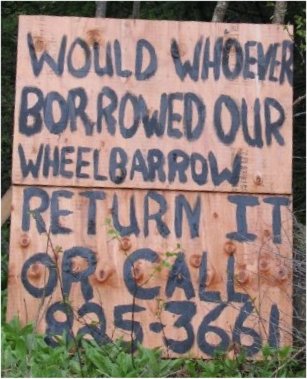 WOULD WHOEVER
BORROWED OUR
WHEELBARROW
RETURN IT
OR CALL
825-3661